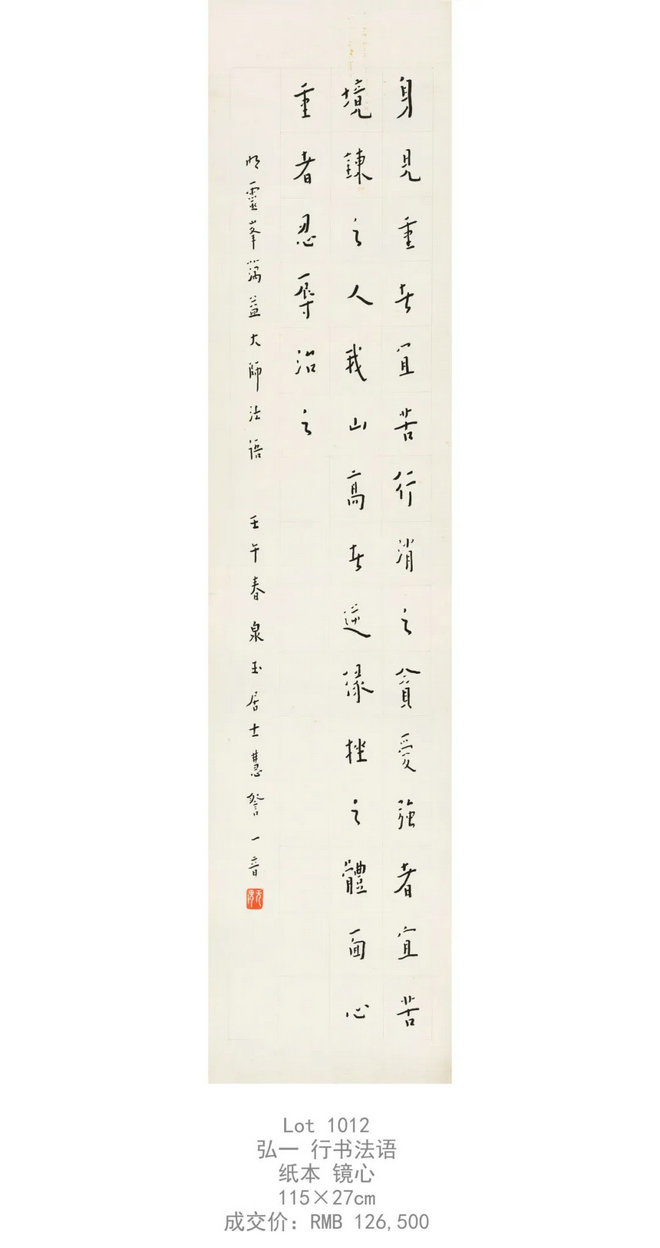 身見重者宜苦行消之貪愛強者宜苦
境鍊之人我山高者逆緣挫之體面心
重者忍辱治之
明靈峯蕅益大師法語 壬午春 泉玉居士慧詧 一音
Lot 1012
弘一 行书法语
纸本 镜心
115×27cm
成交价：RMB 126,500